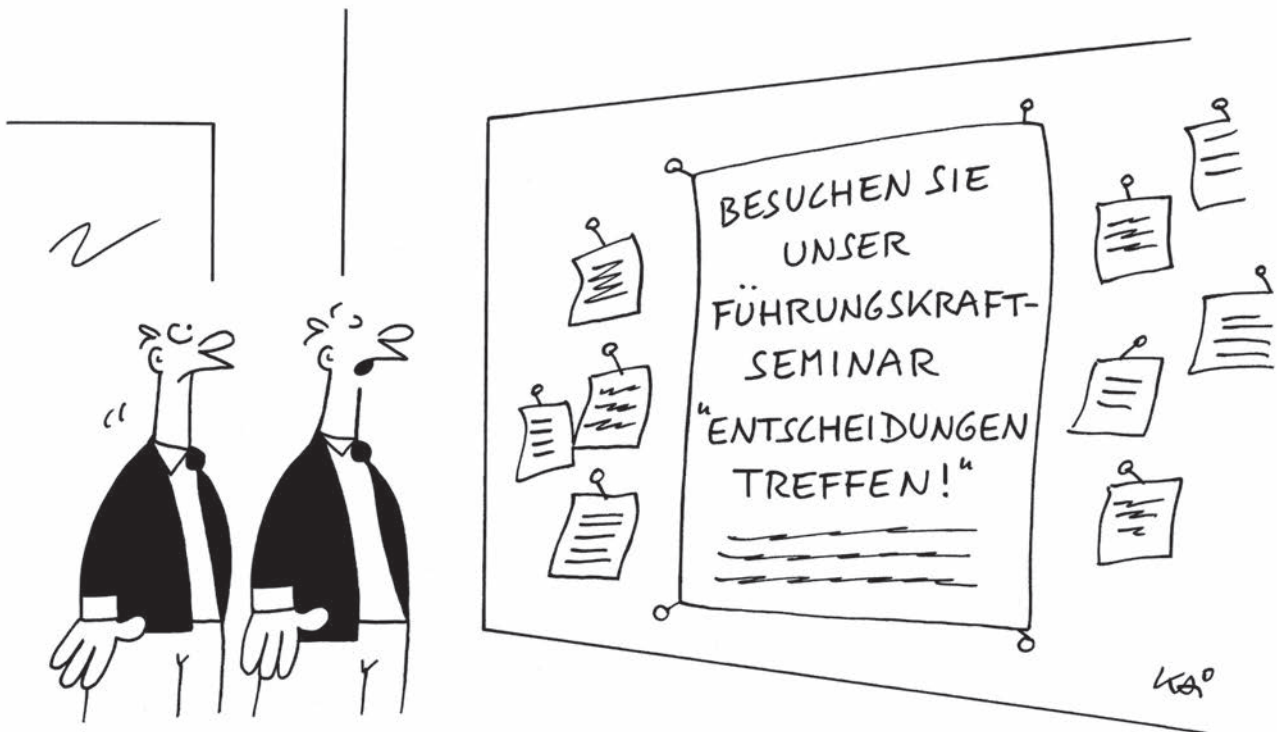 BESUCHEN SIE
UNSER
FÜHRUNGSKRAFT-
SEMINAR
"ENTSCHEIDUNGEN
TREFFEN!"
KAI